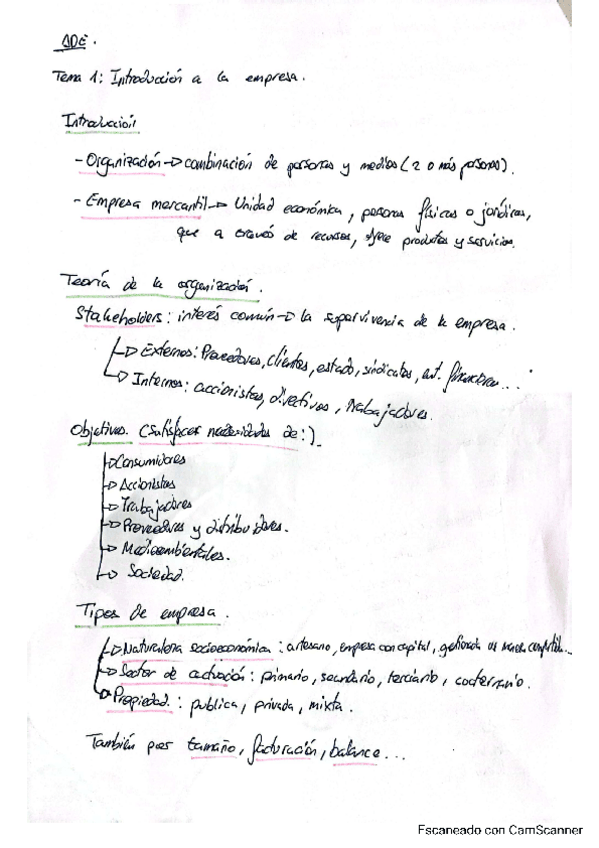 ADE.
Tema 1: Introducción a la empresa.
Introducción
- Organización → combinación de personas y medios (2 o más personas).
- Empresa mercantil → Unidad económica, personas físicas o jurídicas,
que a través de recursos, ofrece productos y servicios.
Teoría de la organización.
Stakeholders: interés común → la supervivencia de la empresa.
→ Externos: Proveedores, clientes, estado, sindicatos, ent. financieras...
→ Internos: accionistas, directivos, trabajadores.
Objetivos. (satisfacer necesidades de:).
→ Consumidores
→ Accionistas
→ Trabajadores
→ Proveedores y distribuidores.
→ Medioambientales.
→ Sociedad.
Tipos de empresa.
→ Naturaleza socioeconómica: artesano, empresa con capital, gestionada de manera compartida...
→ Sector de actuación: primario, secundario, terciario, cuaternario.
→ Propiedad: publica, privada, mixta.
También por tamaño, facturación, balance...
Escaneado con CamScanner